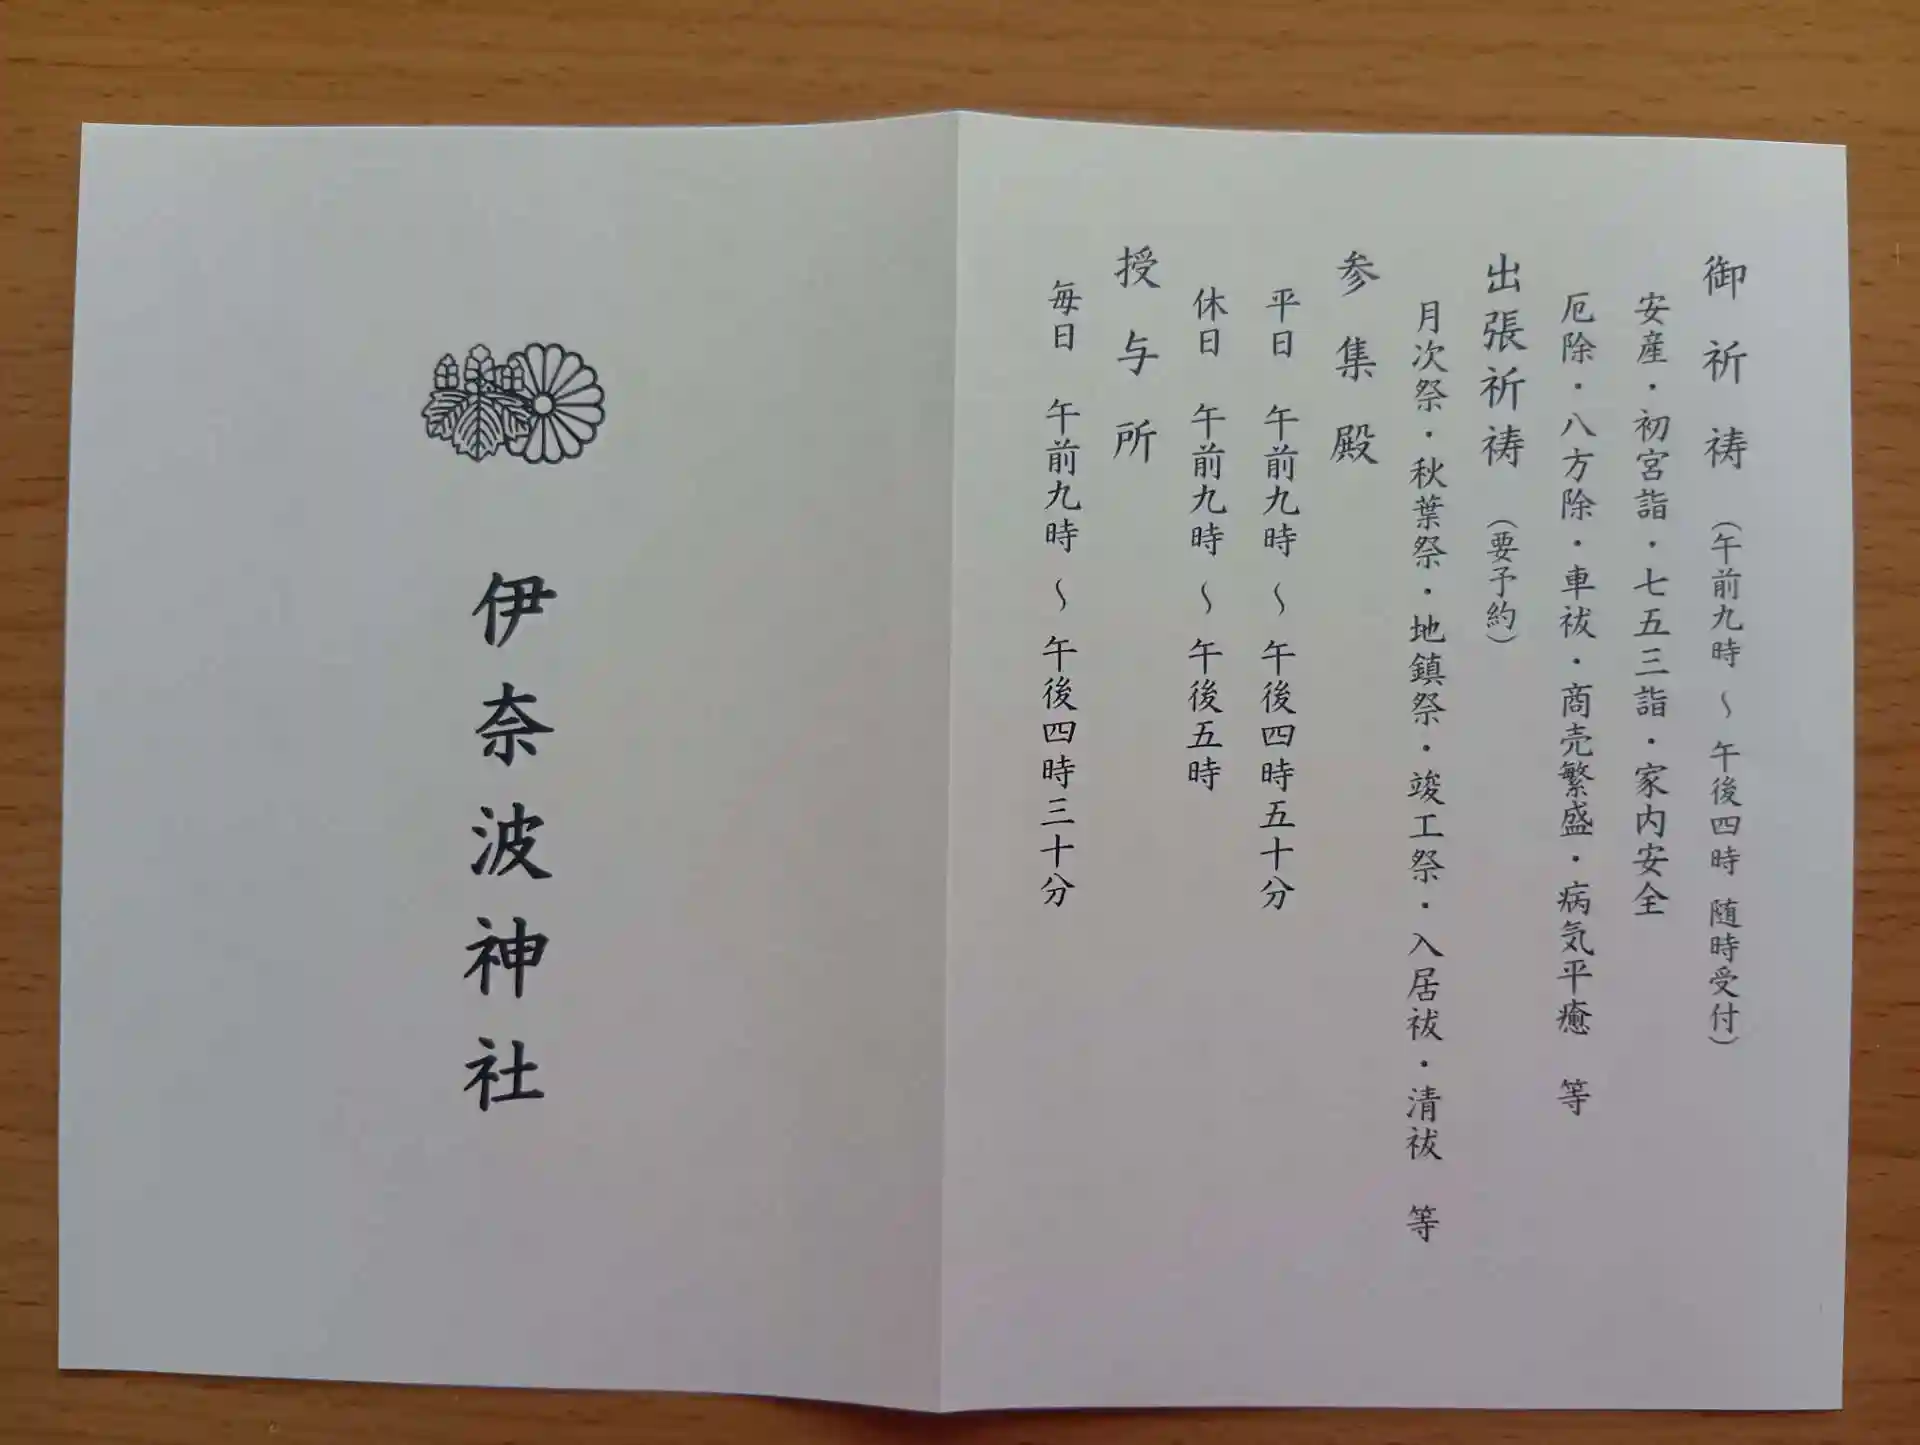 御祈祷（午前九時～午後四時 随時受付）
安産・初宮詣・七五三詣・家内安全
厄除・八方除・車祓・商売繁盛・病気平癒　等
出張祈祷（要予約）
月次祭・秋葉祭・地鎮祭・竣工祭・入居祓・清祓　等
参集殿
平日　午前九時～午後四時五十分
休日　午前九時～午後五時
授与所
毎日　午前九時～午後四時三十分
伊奈波神社